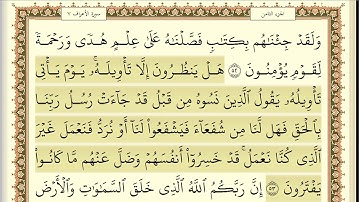 الجزء الثامن
سورة الأعراف ٧
وَلَقَدْ جِئْنَٰهُم بِكِتَٰبٍ فَصَّلْنَٰهُ عَلَىٰ عِلْمٍ هُدًى وَرَحْمَةً
لِّقَوْمٍ يُؤْمِنُونَ ٥٢ هَلْ يَنظُرُونَ إِلَّا تَأْوِيلَهُۥ ۚ يَوْمَ يَأْتِى
تَأْوِيلُهُۥ يَقُولُ ٱلَّذِينَ نَسُوهُ مِن قَبْلُ قَدْ جَآءَتْ رُسُلُ رَبِّنَا
بِٱلْحَقِّ فَهَل لَّنَا مِن شُفَعَآءَ فَيَشْفَعُوا۟ لَنَآ أَوْ نُرَدُّ فَنَعْمَلَ غَيْرَ
ٱلَّذِى كُنَّا نَعْمَلُ ۚ قَدْ خَسِرُوٓا۟ أَنفُسَهُمْ وَضَلَّ عَنْهُم مَّا كَانُوا۟
يَفْتَرُونَ ٥٣ إِنَّ رَبَّكُمُ ٱللَّهُ ٱلَّذِى خَلَقَ ٱلسَّمَٰوَٰتِ وَٱلْأَرْضَ